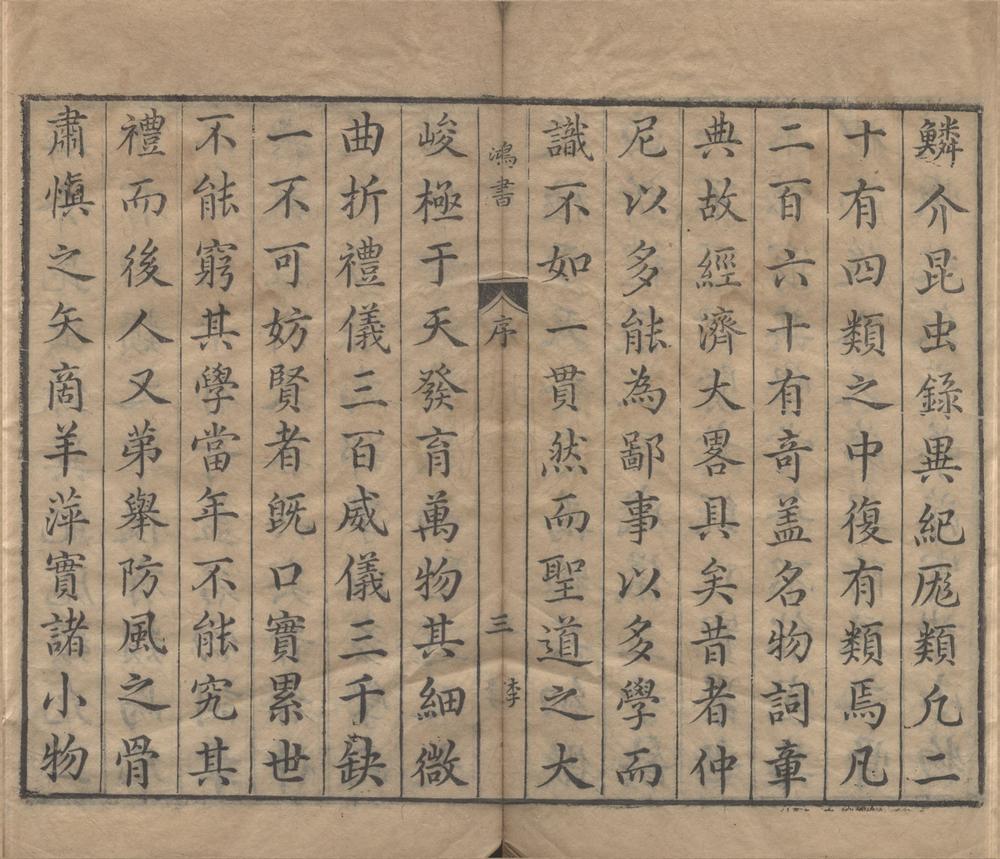 鱗介昆虫錄異紀厖類凢二
十有四類之中復有類焉凡
二百六十有竒盖名物詞章
典故經濟大畧具矣昔者仲
尼以多能為鄙事以多學而
識不如一貫然而聖道之大
鴻書 序 三 李
峻極于天發育萬物其細微
曲折禮儀三百威儀三千缺
一不可妨賢者既口實累世
不能窮其學當年不能究其
禮而後人又苐舉防風之骨
肅愼之矢啇羊萍實諸小物